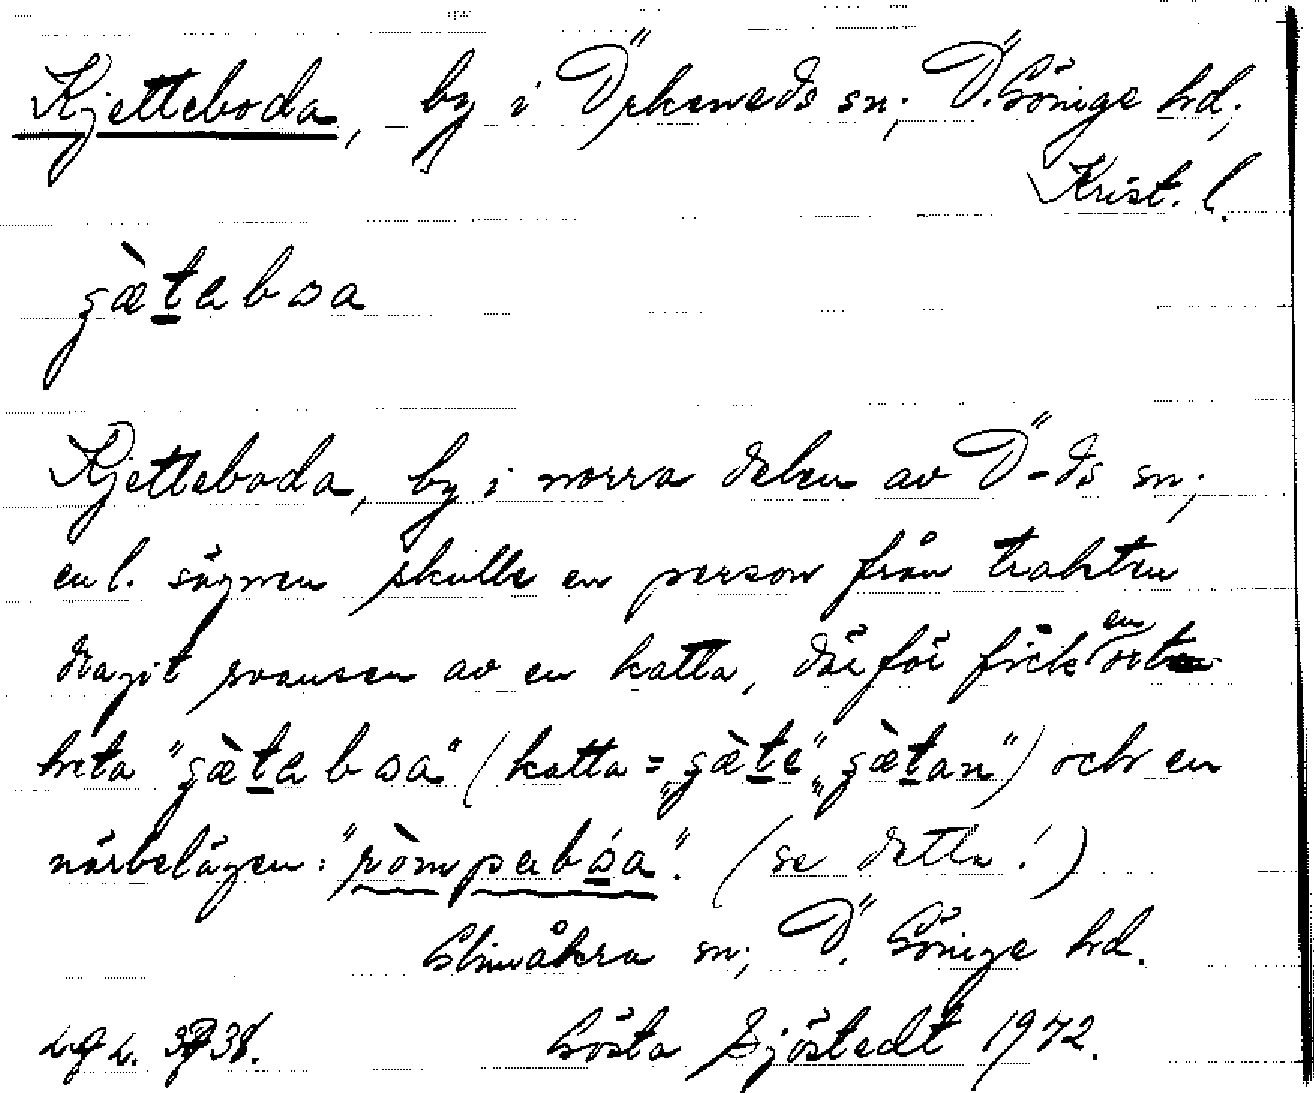 Kjetteboda, by i Örkeneds sn; Ö. Göinge hd;
Krist. l.
gæ̀taboa
Kjetteboda, by i norra delen av Ö-ds sn;
enl. sägnen skulle en person från trakten
dragit svansen av en katta, därför fick en ort
heta "gæ̀taboa" (katta = "gæ̀te" "gæ̀tan") och en
närbelägen: "ròmpabóa". (se detta!)
Glimåkra sn; Ö. Göinge hd.
Gösta Sjöstedt 1972.